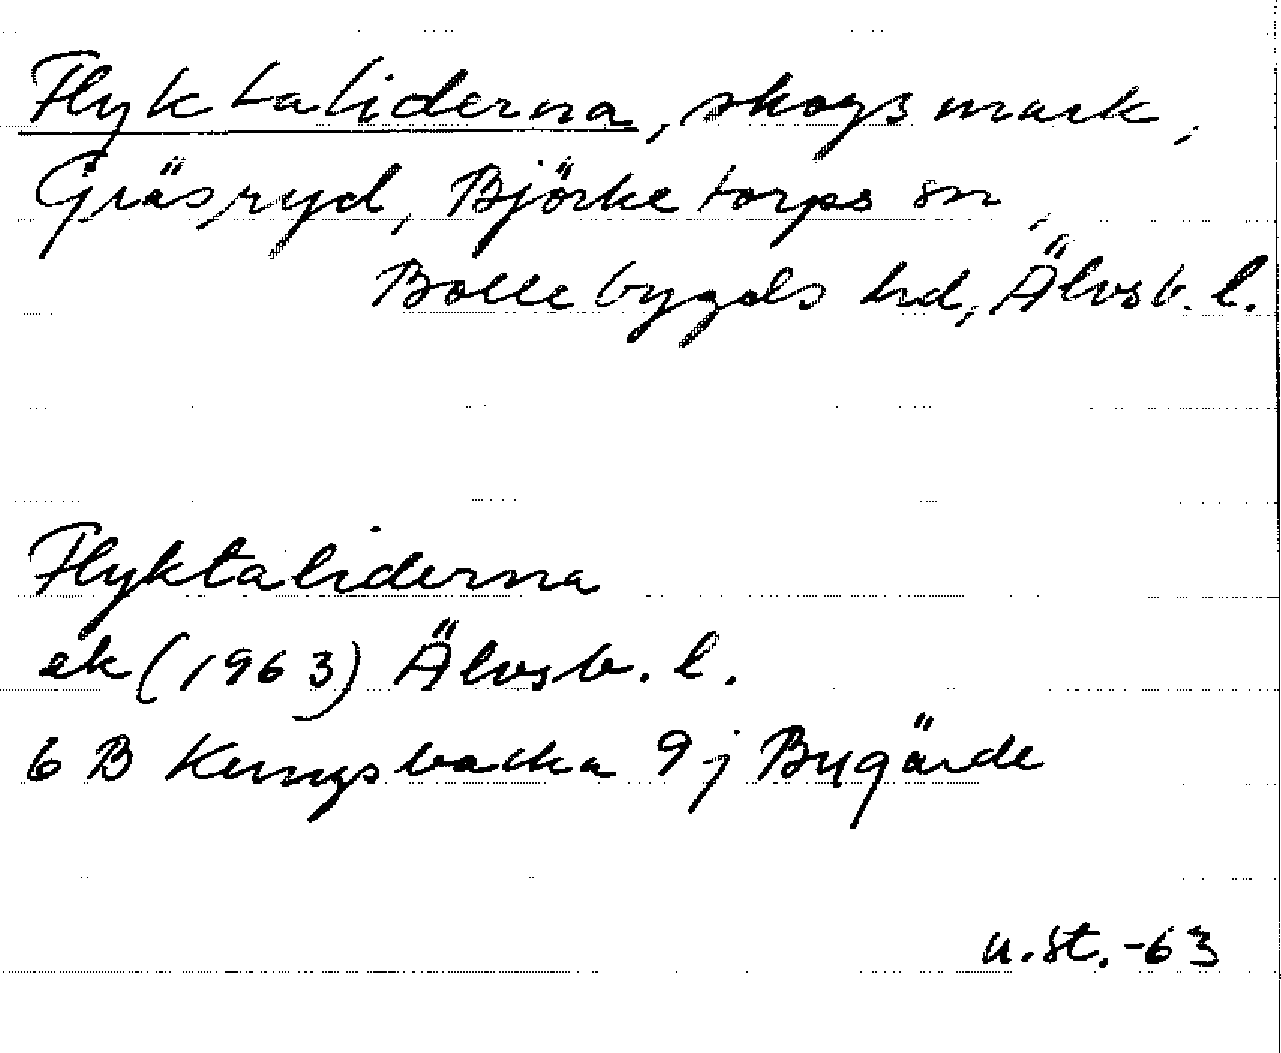 Flyktaliderna, skogsmark,
Gräsryd, Björketorps sn,
Bollebygds hd, Älvsb. l.
Flyktaliderna
ek (1963) Älvsb. l.
6 B Kungsbacka 9 j Bygärde
u.St.-63